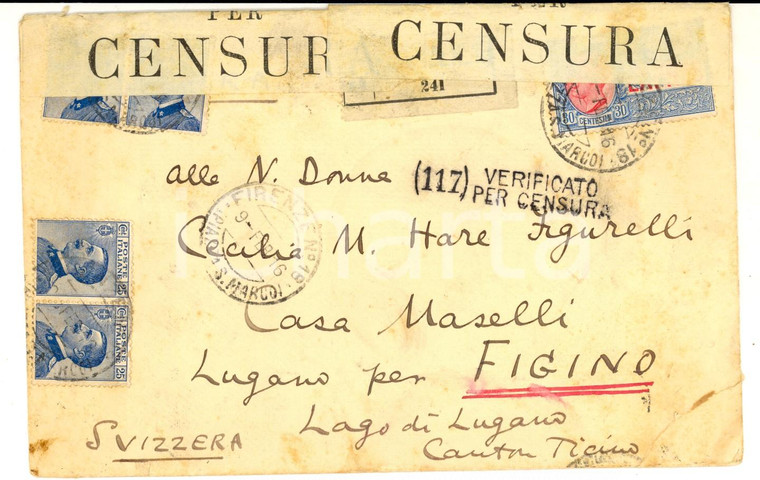 PER
CENSUR
CENSURA
241
30 CENTESIMI 30
alle N. Donna
(117) VERIFICATO
PER CENSURA
FIRENZE Nº 18
S. MARCO
Cecilia M. Hare Figurelli
POSTE ITALIANE 25
Casa Maselli
POSTE ITALIANE 25
Lugano per FIGINO
Lago di Lugano
SVIZZERA
Canton Ticino